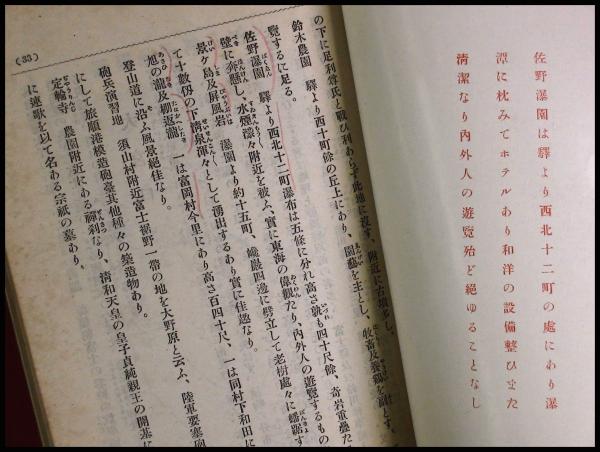 佐野瀑園は驛より西北十二町の處にあり瀑
潭に枕みてホテルあり和洋の設備整ひまた
清潔なり內外人の遊覽殆ど絕ゆることなし
の下に足利尊氏と戰ひ利あらず此地に歿す、附近に古墳多し、
鈴木農園 驛より西十町餘の丘上にあり、園藝を主とし、牧畜及養鷄を副とす。
覽するに足る。
佐野瀑園 驛より西北十二町瀑布は五條に分れ高さ孰も四十尺餘、奇岩重疊た
壁に奔懸し、水煙濛々附近を被ふ、實に東海の偉觀たり、內外人の遊覽するもの
景ケ島及屛風岩 瀑園より約十五町、巉巖四邊に劈立して老樹處々に蟠踞す
て十數仭の下淸泉渾々として湧出するあり實に佳趣なり。
旭の瀧及棚返瀧 一は富岡村今里にあり高さ百四十八、一は同村下和田に
登山道に沿ふ風景絕佳なり。
砲兵演習地 須山村附近富士裾野一帶の地を大野原と云ふ、陸軍要塞砲
にして旅順港模造砲臺其他種々の築造物あり。
定輪寺 農園附近にある禪刹なり、淸和天皇の皇子貞純親王の開基に
に連歌を以て名ある宗祇の墓あり。
(33)